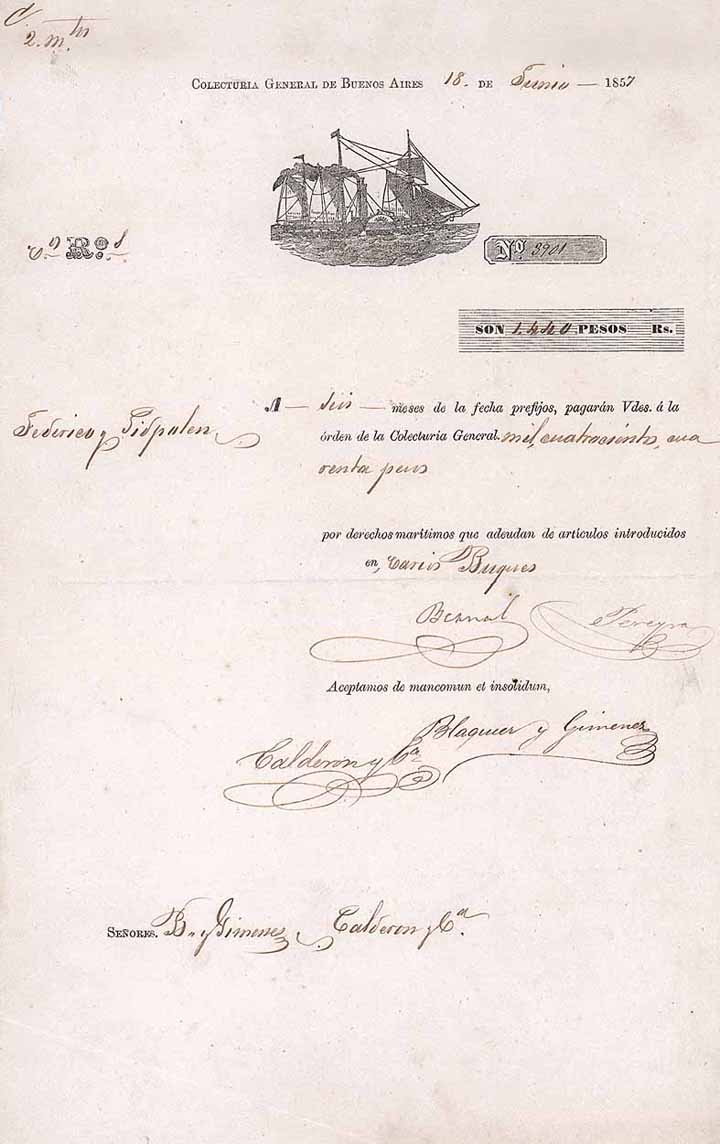 2. m.tn
COLECTURIA GENERAL DE BUENOS AIRES 18. DE Junio — 1857
Rº. 1
Nº. 3901
SON 1.440 PESOS Rs.
A — seis — meses de la fecha prefijos, pagarán Vdes. á la
Federico y
órden de la Colecturia General. mil, cuatrocientos, cua
renta pesos
por derechos marítimos que adeudan de artículos introducidos
en, varios Buques
Bernal Pereyra
Aceptamos de mancomun et insolidum,
Blaquier y Gimenez
Calderon y Ca
SEÑORES. B. y Gimenez, Calderon y Ca.